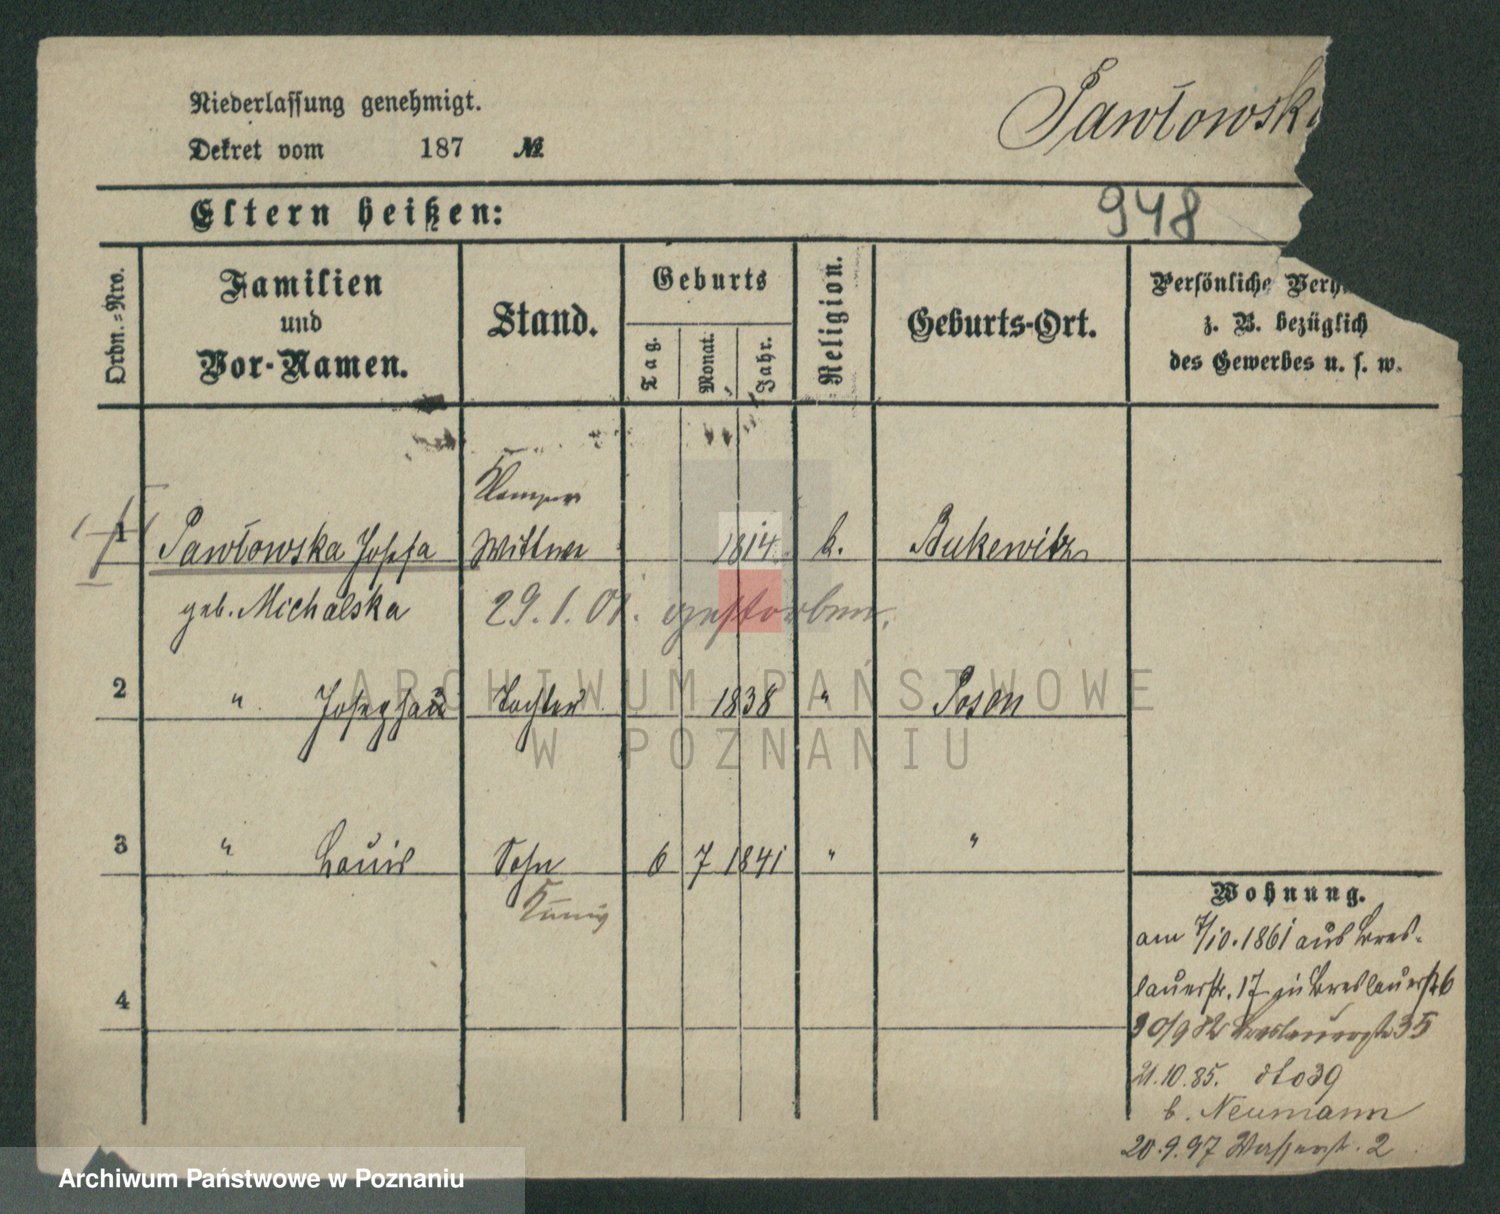 Niederlassung genehmigt.
Pawłowsk
Dekret vom 187 №
Eltern heißen:
948
Ordn.-Nro.
Familien
und
Vor-Namen.
Stand.
Geburts
Tag.
Monat.
Jahr.
Religion.
Geburts-Ort.
Persönliche Verh
z. B. bezüglich
des Gewerbes u. s. w.
1 Pawłowska Josefa Wittwe 1814. k. Bukewitz
geb. Michalska 29.1.01. gestorben.
2 " Tochter 1838 " Posen
3 " Louis Sohn 6 7 1841 " "
4
Wohnung.
am 7/10. 1861 aus Bres-
lauerstr. 17 zu Breslauerstr 6
30/9 82 Breslauerstr 35
21.10.85. dto 39
b. Neumann
20.9.97 Wasserstr. 2
ARCHIWUM PAŃSTWOWE
W POZNANIU
Archiwum Państwowe w Poznaniu